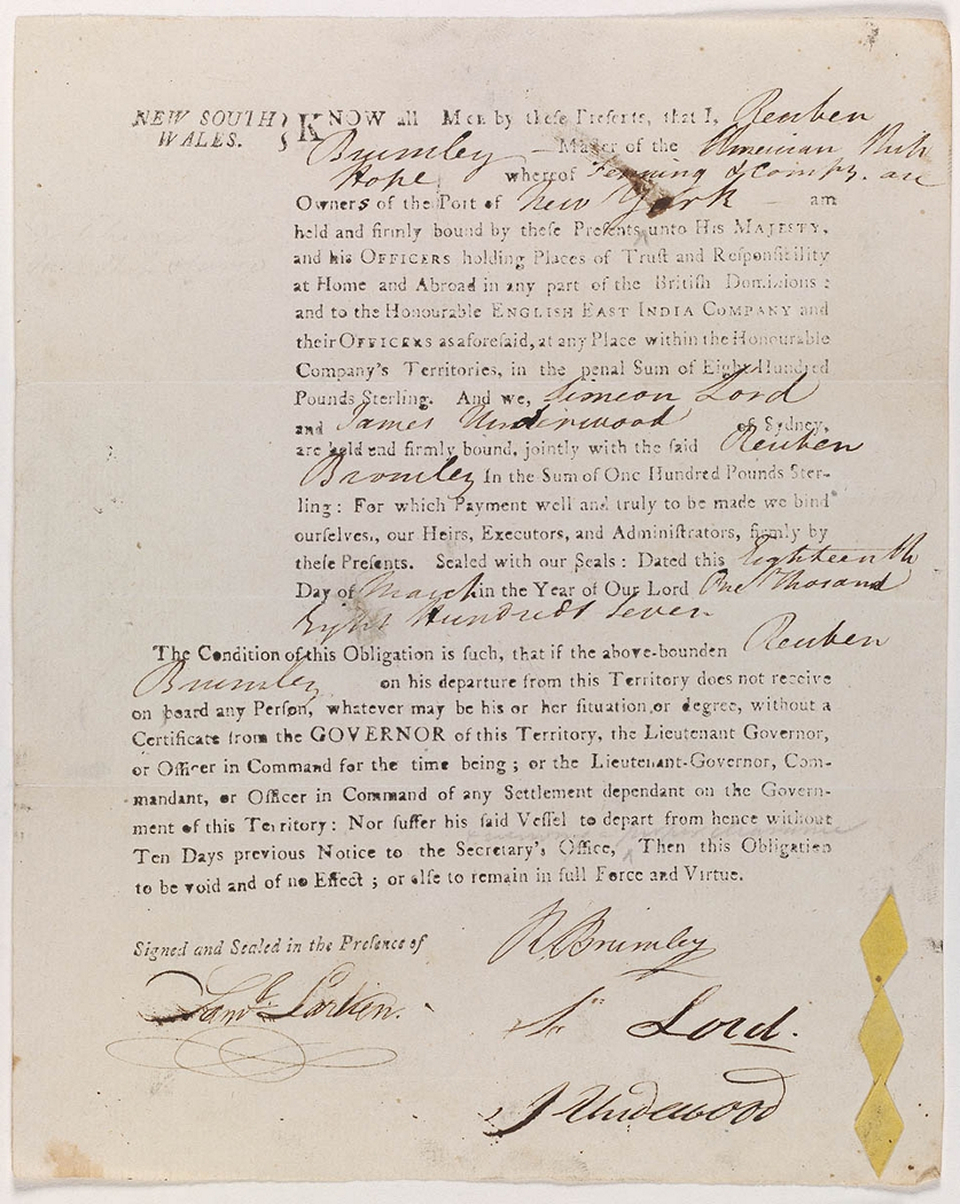 NEW SOUTH WALES. } KNOW all Men by theſe Preſents, that I, Reuben
Brumley — Maſter of the American Ship
Hope whereof Fenning & Compy. are
Owners of the Port of New York — am
held and firmly bound by theſe Preſents unto HIS MAJESTY,
and his OFFICERS holding Places of Truſt and Reſponſibility
at Home and Abroad in any part of the Britiſh Dominions :
and to the Honourable ENGLISH EAST INDIA COMPANY and
their OFFICERS as aforeſaid, at any Place within the Honourable
Company's Territories, in the penal Sum of Eight Hundred
Pounds Sterling. And we, Simeon Lord
and James Underwood of Sydney,
are held and firmly bound, jointly with the ſaid Reuben
Bromley In the Sum of One Hundred Pounds Ster-
ling : For which Payment well and truly to be made we bind
ourſelves, our Heirs, Executors, and Adminiſtrators, firmly by
theſe Preſents. Sealed with our Seals : Dated this Eighteenth
Day of March in the Year of Our Lord One Thosand
Eight Hundred Seven
The Condition of this Obligation is ſuch, that if the above-bounden Reuben
Brumley on his departure from this Territory does not receive
on board any Perſon, whatever may be his or her ſituation or degree, without a
Certificate from the GOVERNOR of this Territory, the Lieutenant Governor,
or Officer in Command for the time being ; or the Lieutenant-Governor, Com-
mandant, or Officer in Command of any Settlement dependant on the Govern-
ment of this Territory : Nor ſuffer his ſaid Veſſel to depart from hence without
Ten Days previous Notice to the Secretary's Office, Then this Obligation
to be void and of no Effect ; or elſe to remain in full Force and Virtue.
Signed and Sealed in the Preſence of
R Brumley
Saml. Larkin.
Sn Lord.
J Underwood